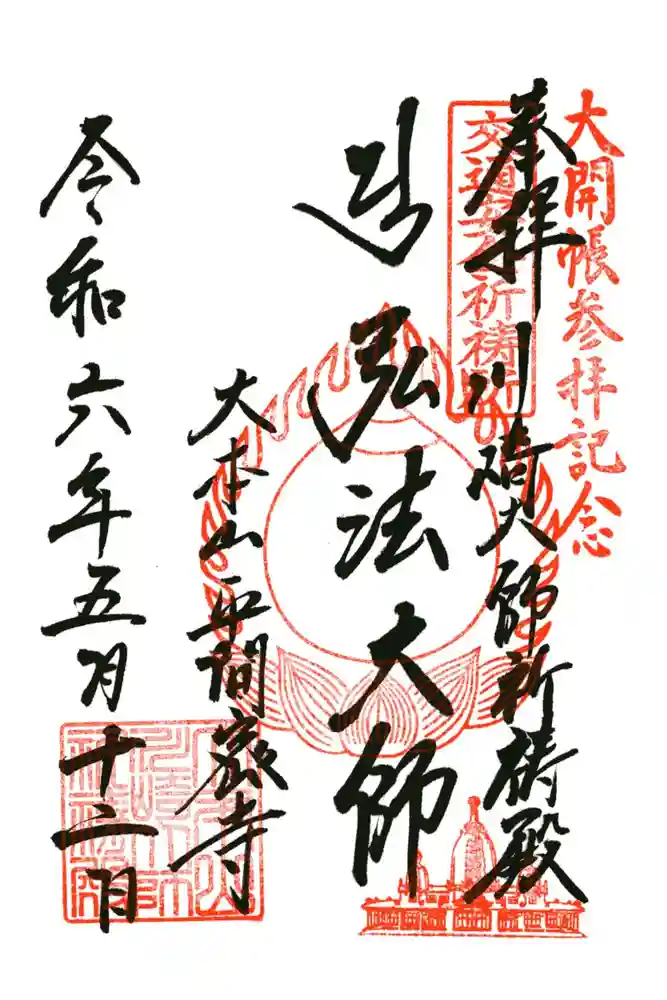 大開帳参拝記念
奉拝 川崎大師祈祷殿
交通安全祈祷所
弘法大師
大本山平間寺
令和六年五月十二日